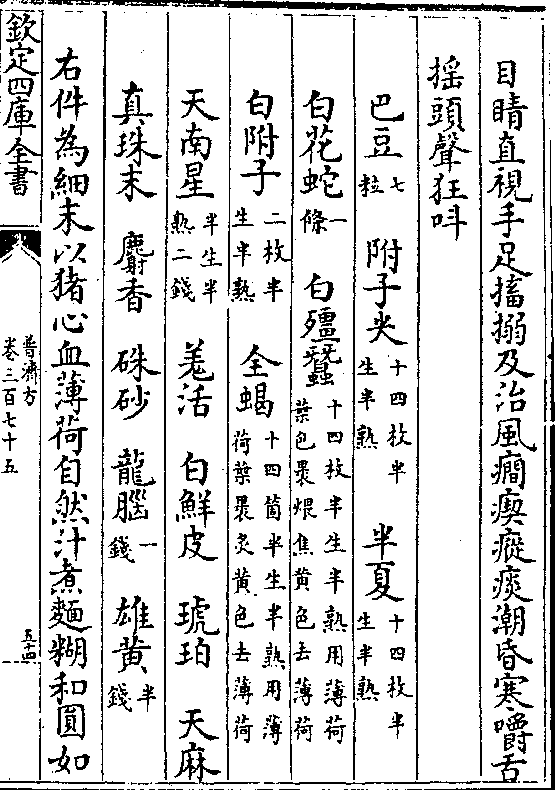 目睛直視手足搐搦及治風癎瘈瘲痰潮昏寒嚼舌
揺頭聲狂呌
巴豆七粒 附子尖十四枚半生半熟 半夏十四枚半生半熟
白花蛇一條 白殭蠶十四枚半生半熟用薄荷葉包裹煨焦黄色去薄荷
白附子二枚半生半熟 全蝎十四箇半生半熟用薄荷葉裹炙黄色去薄荷
天南星半生半熟二錢 羌活 白鮮皮 琥珀 天麻
真珠末 麝香 硃砂 龍腦一錢 雄黄半錢
右件為細末以猪心血薄荷自然汁煮麵糊和圓如
欽定四庫全書
普濟方
卷三百七十五
五十四